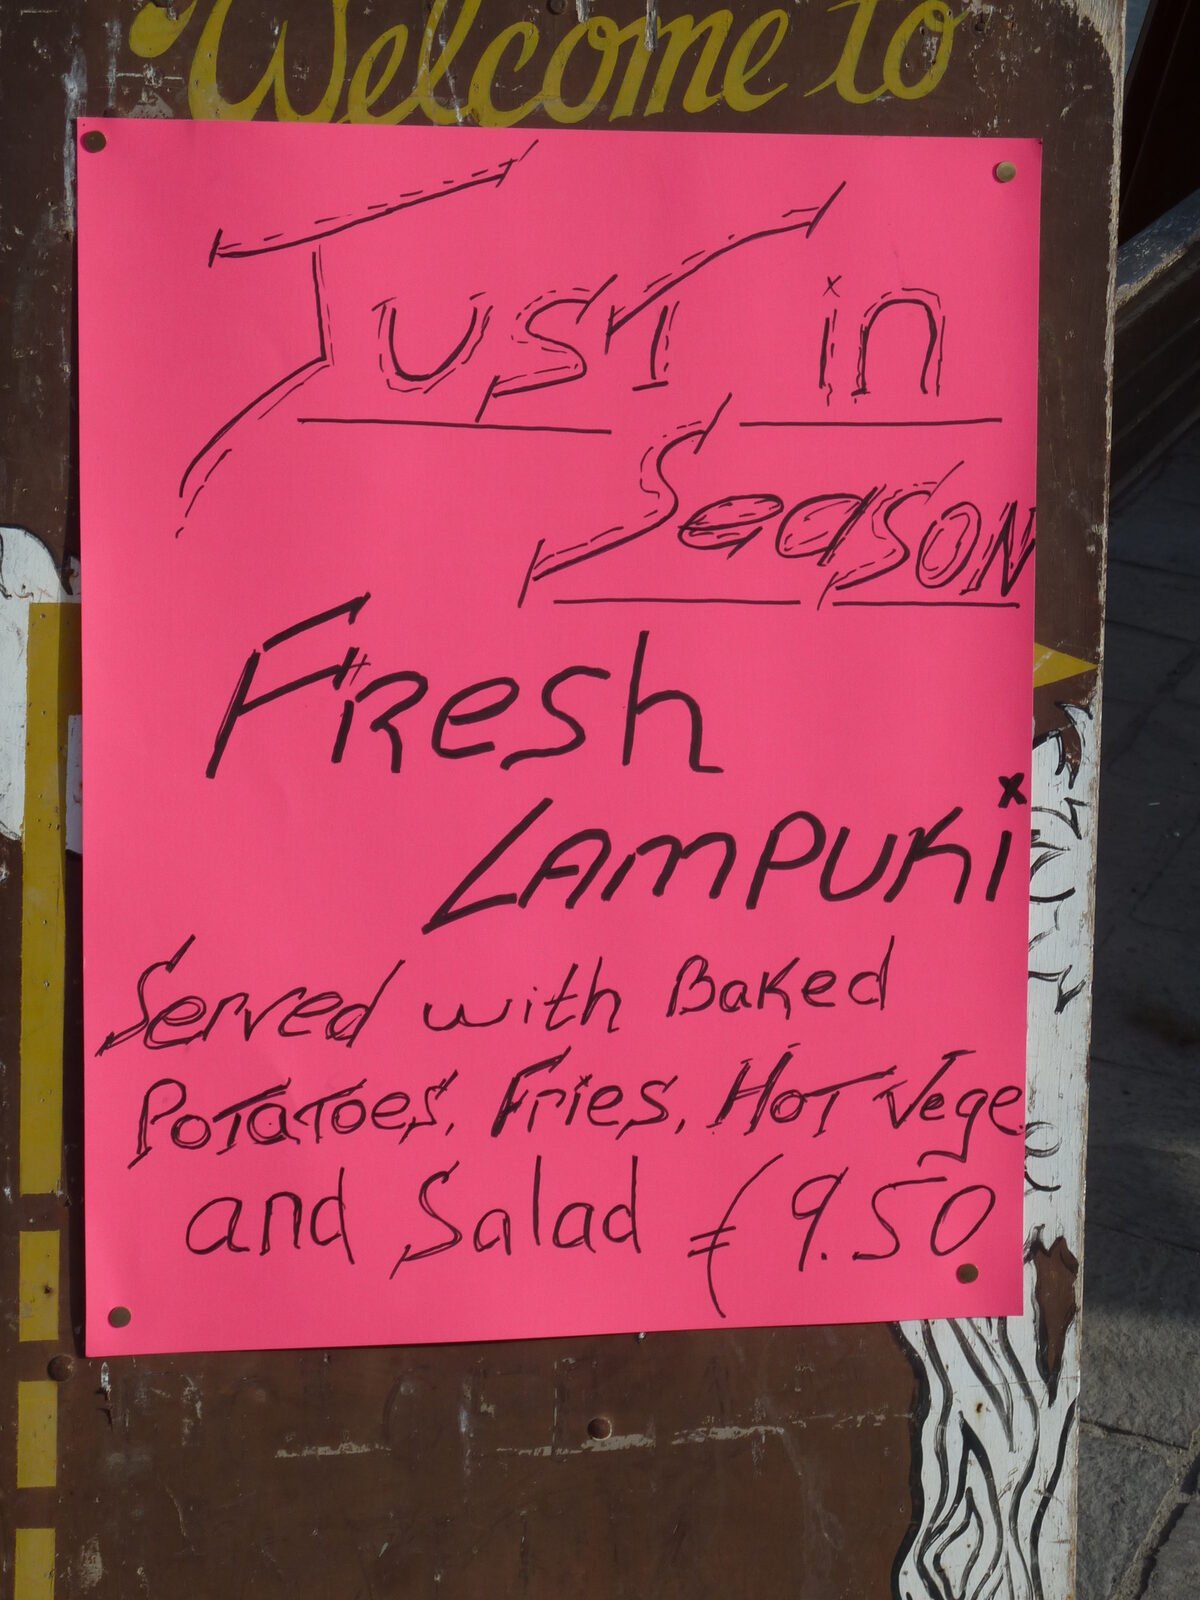 Welcome to
Just in
Season
Fresh
Lampuki
Served with Baked
Potatoes, Fries, Hot Vege
and Salad €9.50